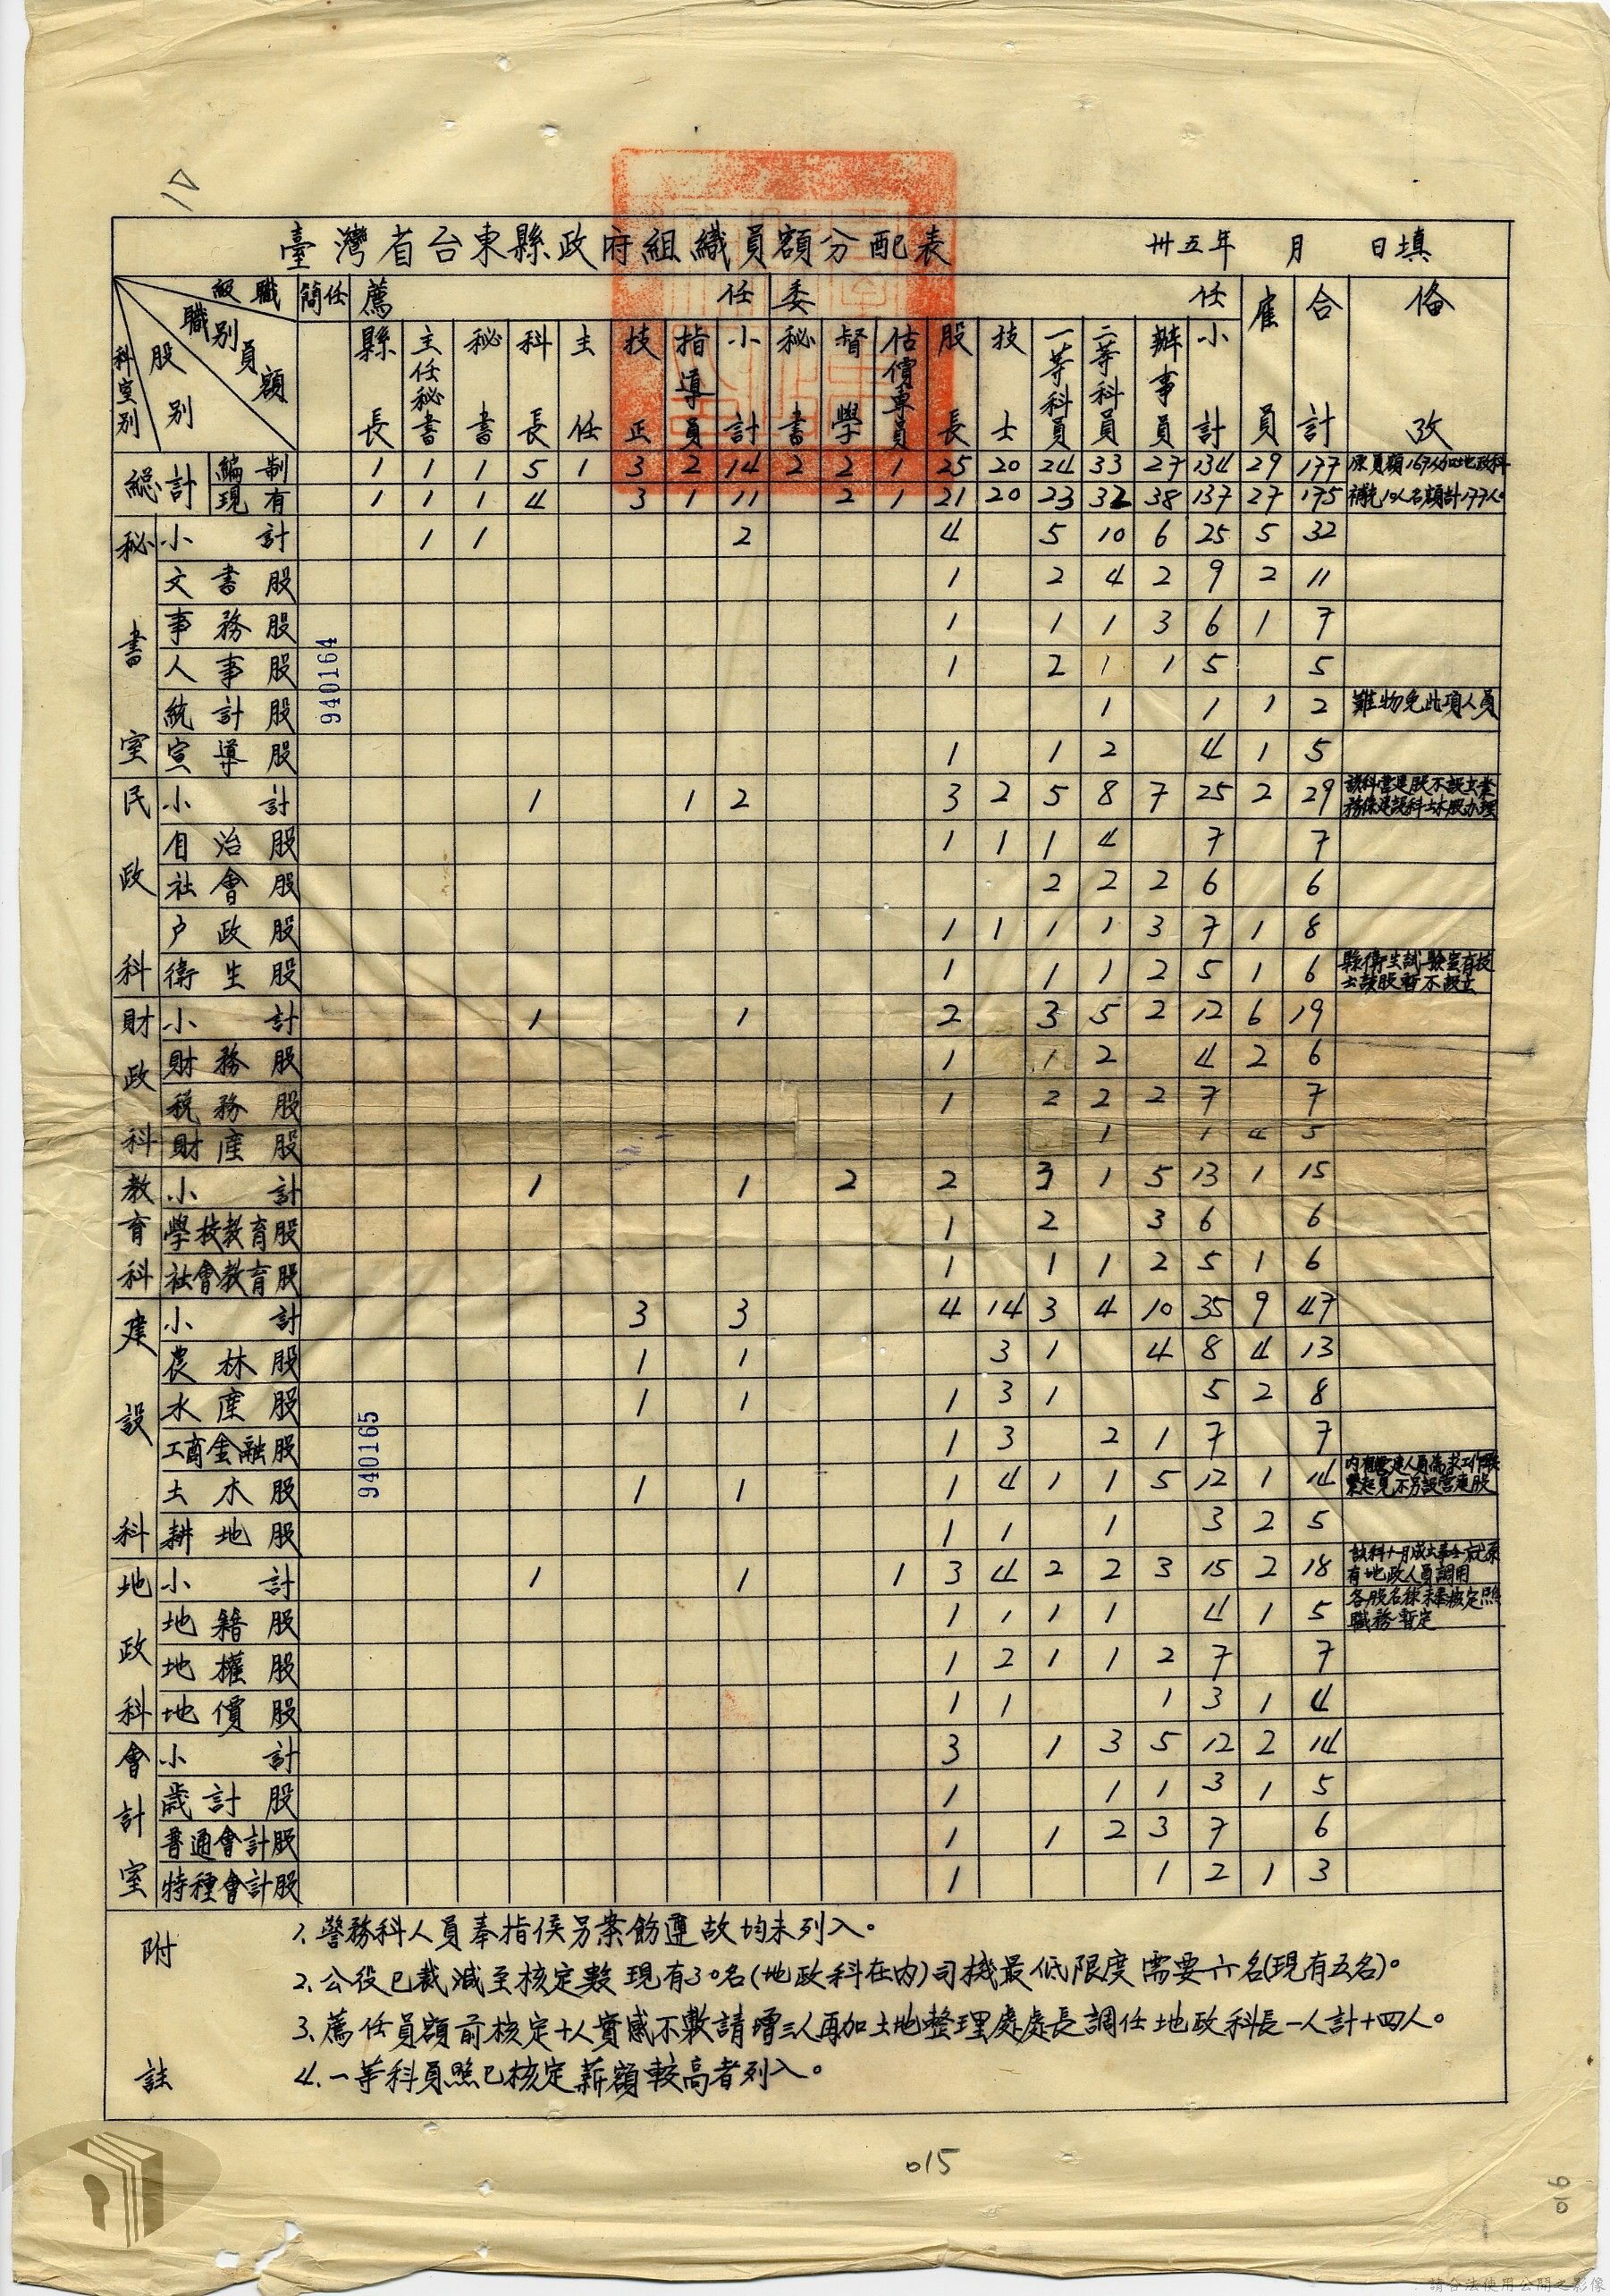 臺灣省台東縣政府組織員額分配表 卅五年 月 日填
級職 簡任 薦任 委任 雇員 合計 備攷
職別 員額 股別 科室別 縣長 主任秘書 秘書 科長 主任 技正 指導員 小計 秘書 督學 估價專員 股長 技士 一等科員 二等科員 辦事員 小計
總計 編制 1 1 1 5 1 3 2 14 2 2 1 25 20 24 33 27 134 29 177 原員額167人加地政科
現有 1 1 1 4 3 1 11 2 1 21 20 23 32 38 137 27 175 補充10人名額計177人
秘書室 小計 1 1 2 4 5 10 6 25 5 32
文書股 1 2 4 2 9 2 11
事務股 1 1 1 3 6 1 7
人事股 1 2 1 1 5 5
統計股 1 1 1 2 難物免此項人員
宣導股 1 1 2 4 1 5
民政科 小計 1 1 2 3 2 5 8 7 25 2 29 該科營建股不設立業
務係建設科土木股办理
自治股 1 1 1 4 7 7
社會股 2 2 2 6 6
户政股 1 1 1 1 3 7 1 8
衛生股 1 1 1 2 5 1 6 縣衛生試驗室有技
士該股暫不設立
財政科 小計 1 1 2 3 5 2 12 6 19
財務股 1 1 2 4 2 6
稅務股 1 2 2 2 7 7
財產股 1 1 4 5
教育科 小計 1 1 2 2 3 1 5 13 1 15
學校教育股 1 2 3 6 6
社會教育股 1 1 1 2 5 1 6
建設科 小計 3 3 4 14 3 4 10 35 9 47
農林股 1 1 3 1 4 8 4 13
水產股 1 1 1 3 1 5 2 8
工商金融股 1 3 2 1 7 7
土木股 1 1 1 4 1 1 5 12 1 14 內有營建人員為求工作緊
緊起見不另設营建股
耕地股 1 1 1 3 2 5
地政科 小計 1 1 1 3 4 2 2 3 15 2 18 該科十一月成立奉令就原
有地政人員調用
地籍股 1 1 1 1 4 1 5 各股名稱未奉核定照
職務暫定
地權股 1 2 1 1 2 7 7
地價股 1 1 1 3 1 4
會計室 小計 3 1 3 5 12 2 14
歲計股 1 1 1 3 1 5
普通會計股 1 1 2 3 7 6
特種會計股 1 1 2 1 3
附註
1.警務科人員奉指侯另案飭遵故均未列入。
2.公役已裁減至核定數現有30名(地政科在内)司機最低限度需要六名(現有五名)。
3.薦任員額前核定十人實感不敷請增三人再加土地整理處處長調任地政科長一人計十四人。
4.一等科員照已核定薪額較高者列入。
940164
940165
015
016
請合法使用公開之影像